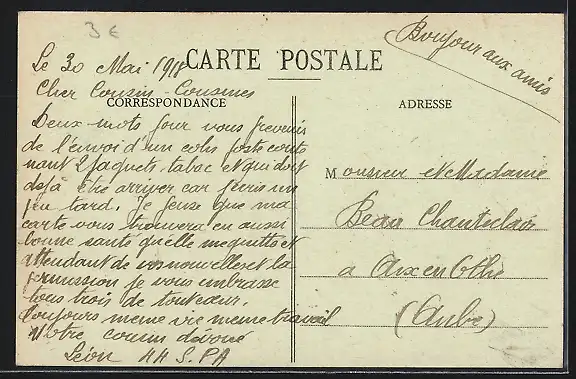 3 €
Bonjour aux amis
CARTE POSTALE
Le 30 Mai 1918
Cher Cousin Cousines
CORRESPONDANCE
ADRESSE
Deux mots pour vous prevenir
de l'envoi d'un colis poste conte
nant 2 paquets tabac et qui doit
deja être arriver car je suis un
peu tard. Je pense que ma
carte vous trouvera en aussi
bonne santé qu'elle me quitte et
attendant de vos nouvelles et la
permission je vous embrasse
tous trois de tout cœur.
Toujours meme vie meme travail
Votre cousin dévoué
Léon
Monsieur et Madame
Beau Chanteclair
a Aix en Othe
(Aube)